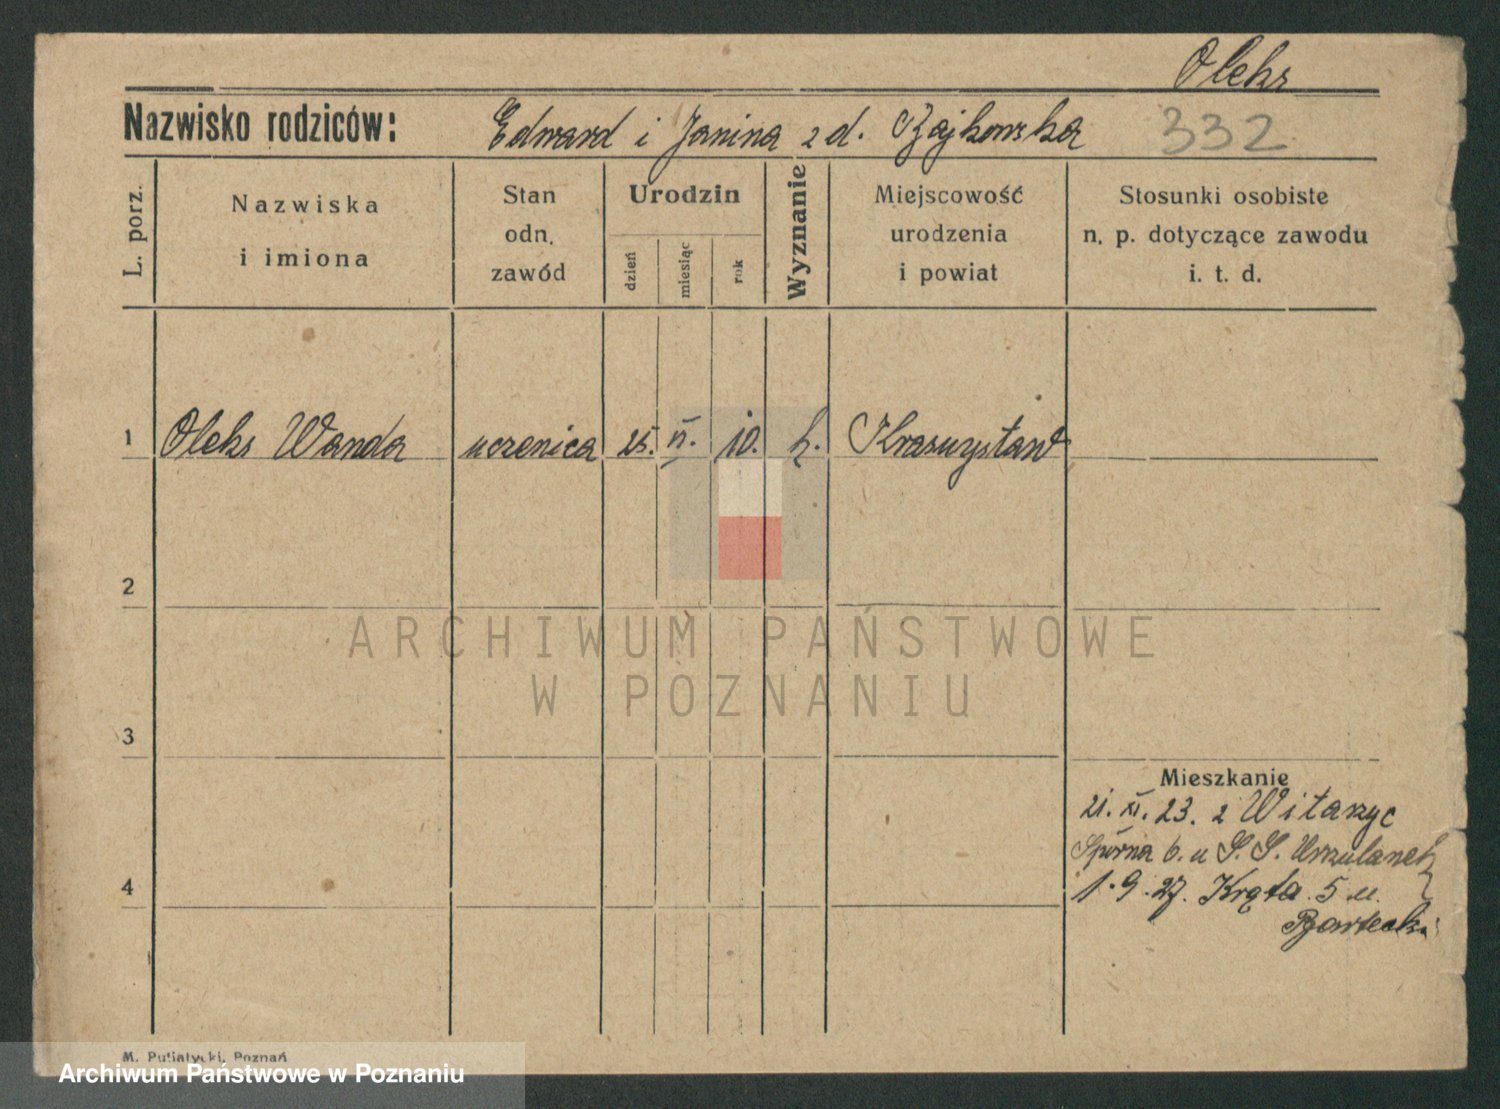 Oleks
Nazwisko rodziców: Edward i Janina z d. Zajkowska 332
L. porz.
Nazwiska
i imiona
Stan
odn.
zawód
Urodzin
dzień
miesiąc
rok
Wyznanie
Miejscowość
urodzenia
i powiat
Stosunki osobiste
n. p. dotyczące zawodu
i. t. d.
1 Oleks Wanda uczenica 25. VI. 10. k. Krasnystaw
2
ARCHIWUM PAŃSTWOWE
W POZNANIU
3
Mieszkanie
21. XI. 23. z Witaszyc
Spórna 6. u S. S. Urszulanek
4
1. 9. 27. Kręta 5 u.
M. Putiatycki, Poznań
Archiwum Państwowe w Poznaniu